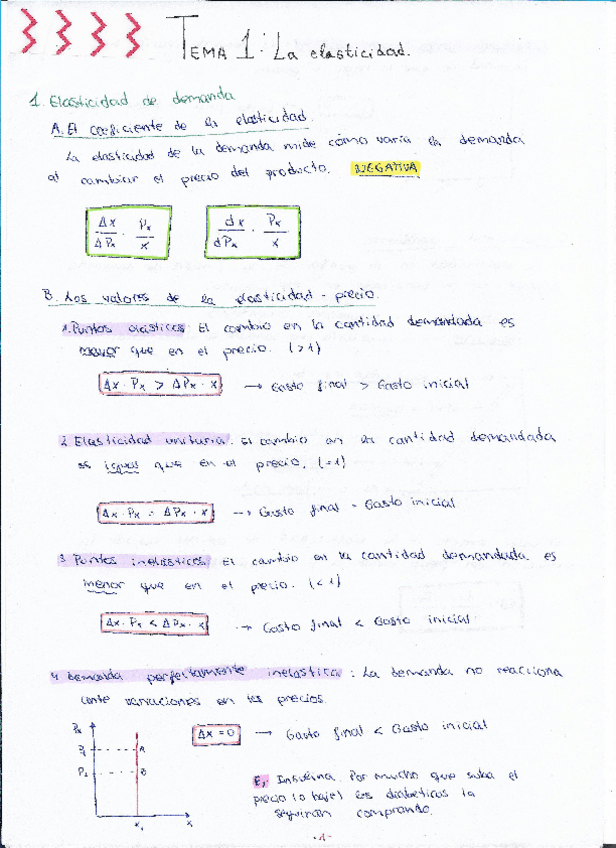 TEMA 1: La elasticidad.
1. Elasticidad de demanda
A. El coeficiente de la elasticidad.
La elasticidad de la demanda mide cómo varía la demanda
al cambiar el precio del producto. NEGATIVA
Δx/ΔPx · Px/x   dx/dPx · Px/x
B. Los valores de la elasticidad-precio.
1. Puntos elásticos: El cambio en la cantidad demandada es
que en el precio. (>1)
Δx · Px > ΔPx · x → Gasto final > Gasto inicial
2. Elasticidad unitaria: El cambio en la cantidad demandada
es igual que en el precio. (=1)
Δx · Px = ΔPx · x → Gasto final = Gasto inicial
3. Puntos inelásticos: El cambio en la cantidad demandada es
menor que en el precio. (<1)
Δx · Px < ΔPx · x → Gasto final < Gasto inicial
4. Demanda perfectamente inelástica: La demanda no reacciona
ante variaciones en los precios.
Δx = 0 → Gasto final < Gasto inicial
Px
P1 A
P2 B
x1 x
Ej Insulina. Por mucho que suba el
precio (o baje) los diabéticos la
seguirán comprando.
-1-